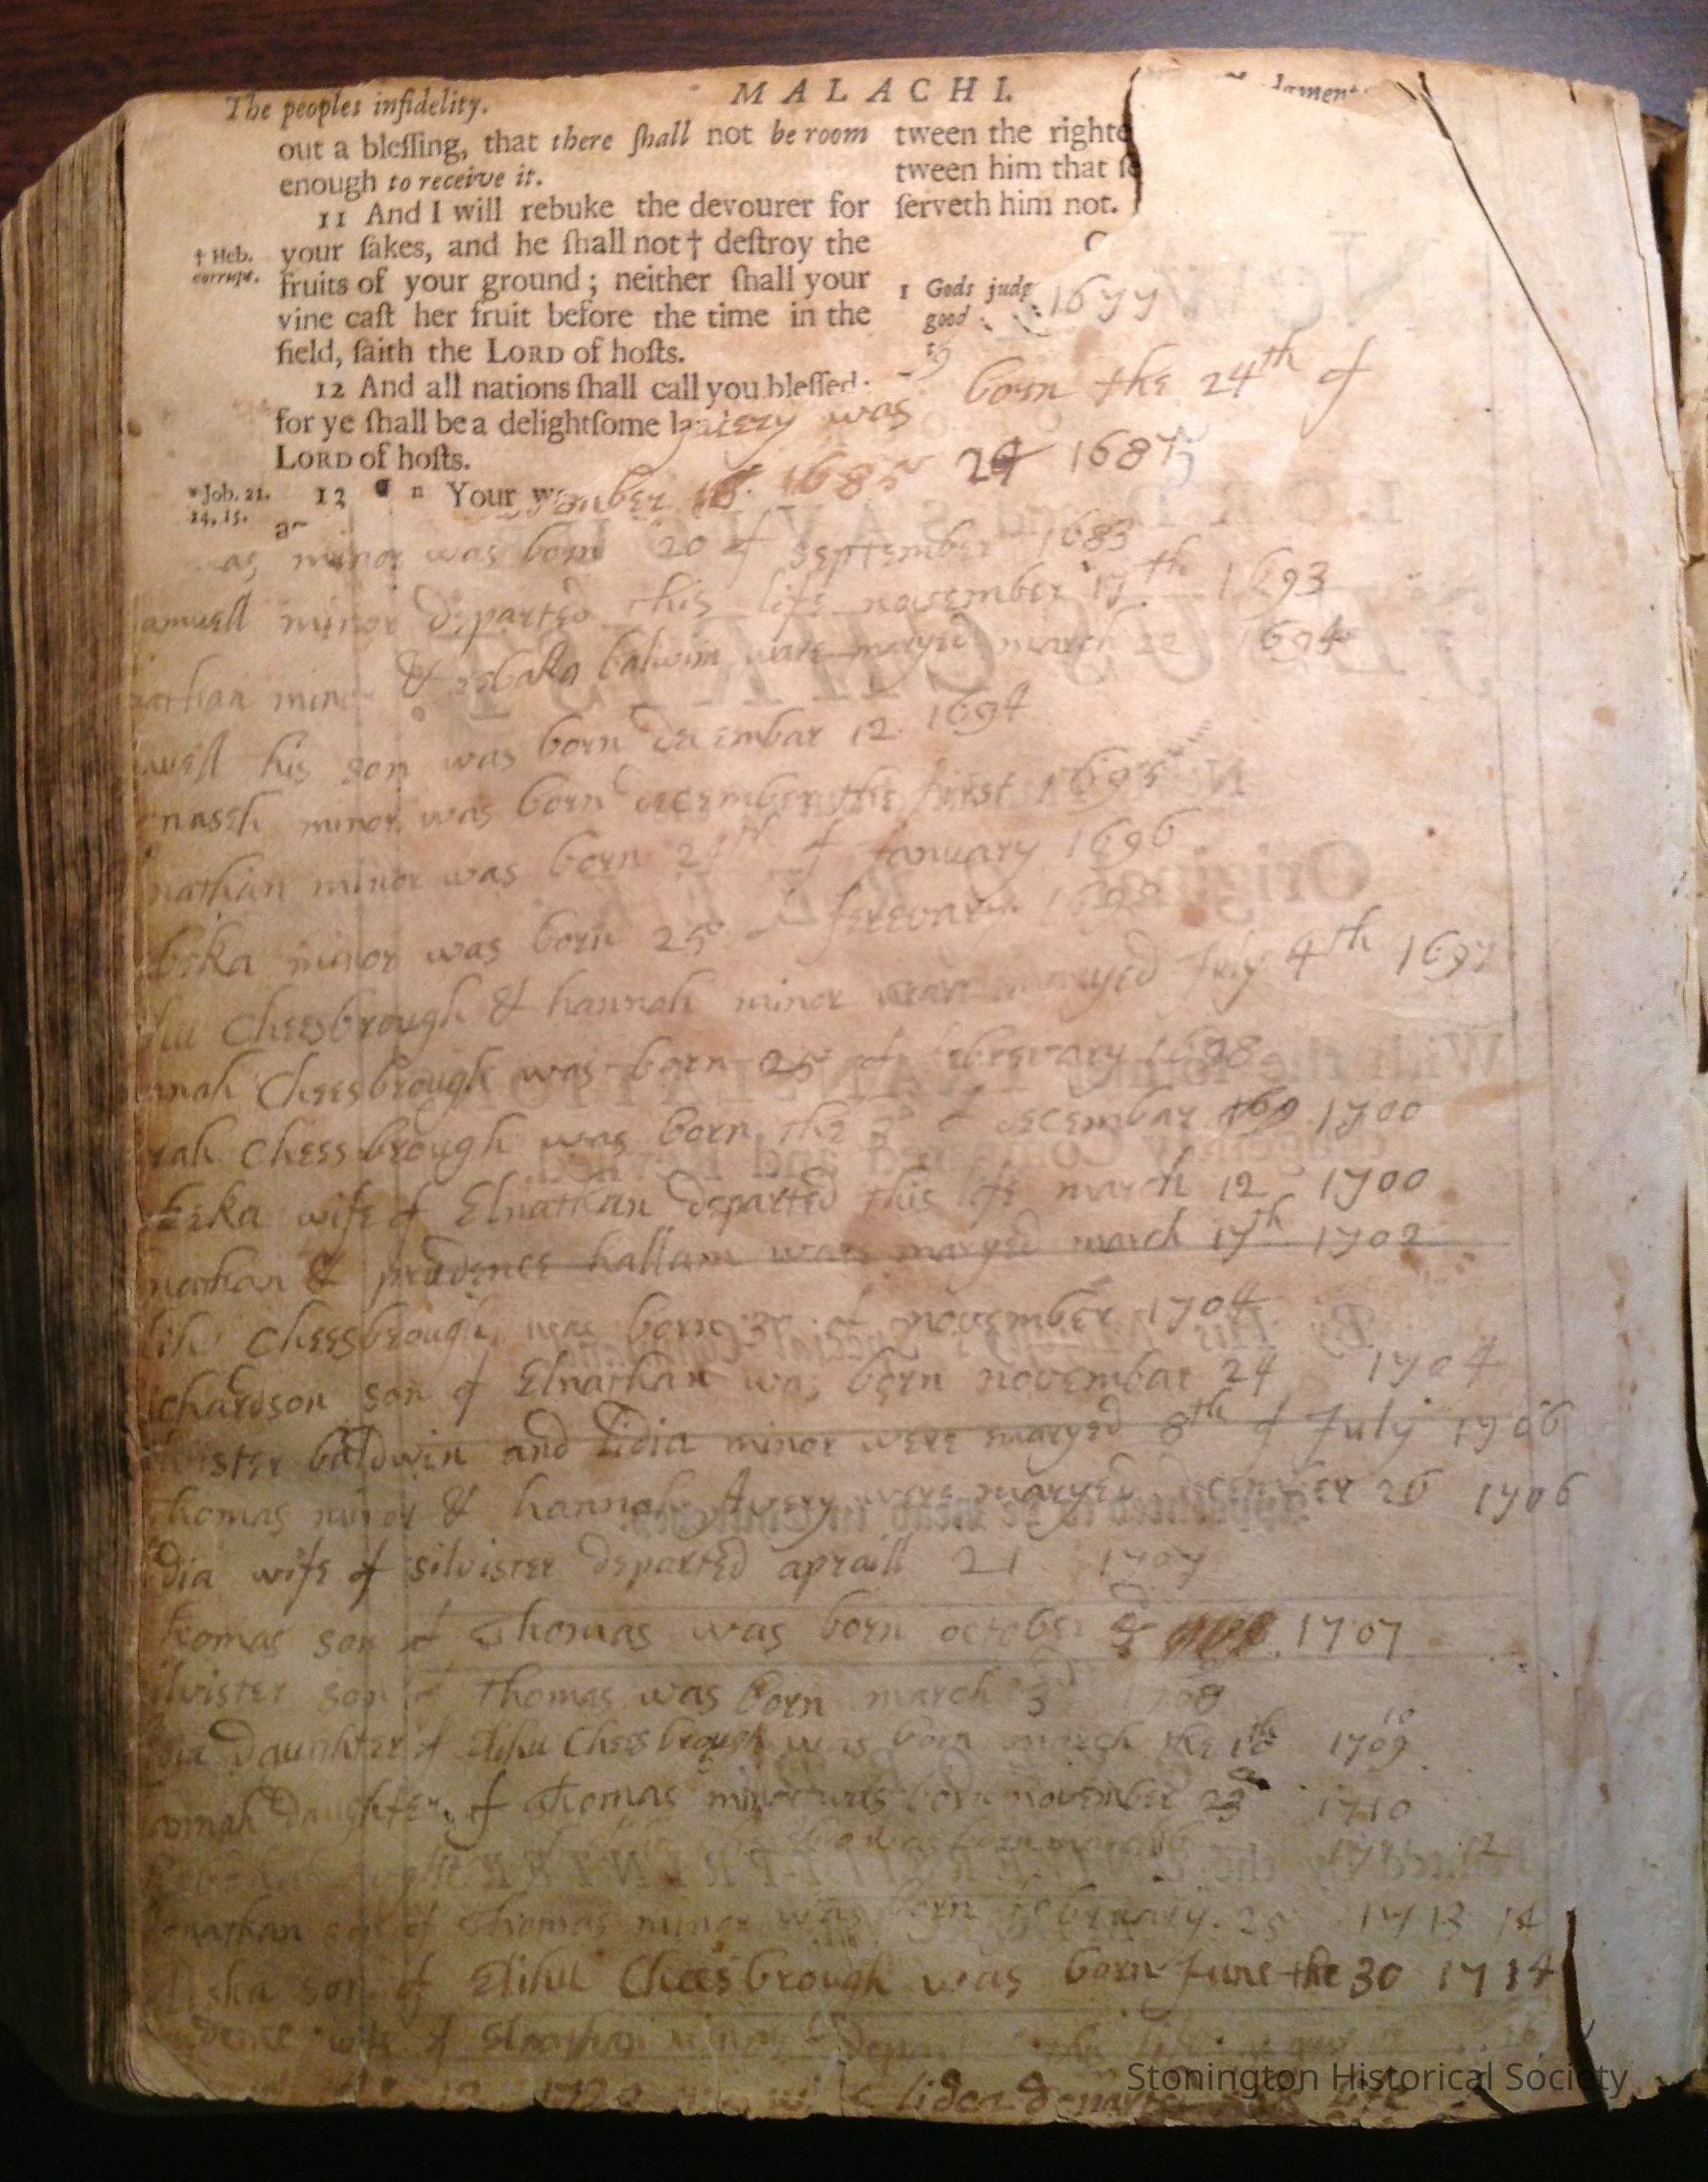 The peoples infidelity.
MALACHI.
out a bleſſing, that there ſhall not be room
enough to receive it.
11 And I will rebuke the devourer for
your ſakes, and he ſhall not † deſtroy the
fruits of your ground ; neither ſhall your
vine caſt her fruit before the time in the
field, ſaith the LORD of hoſts.
12 And all nations ſhall call you bleſſed
for ye ſhall be a delightſome
LORD of hoſts.
13 Your
† Heb.
corrupt.
* Job. 21.
14, 15.
tween the righte
tween him that ſe
ſerveth him not.
1 Gods judg
good
1677
was born the 24th of
mber 18 1685 24 1687
minor was born 20 of september 1683
amuell minor departed this life november 17th 1693
nathan minor & rebaka balwin ware maryed march 22 1694
muell his son was born decembar 12 1694
naseh minor was born december the first 1695
nathan minor was born 27th of January 1696
beka minor was born 25 of 1698
hu Cheesbrough & hannah minor ware maryed July 4th 1697
nnah Cheesbrough was born 25 of 1698
rah Cheesbrough was born the 3d of decembar 169 1700
beka wife of Elnathan departed this life march 12 1700
nathan & prudence hallam ware maryed march 17th 1702
lihu Cheesbrough was born of november 1704
ichardson son of Elnathan was born novembar 24 1704
ilvister baldwin and Lidia minor were maryed 8th of July 1706
Thomas minor & hannah Avery were maryed december 26 1706
idia wife of silvister departed apraill 21 1707
homas son of Thomas was born october 1707
ilvister son of Thomas was born march 3d 1708
daughter of Elihu Cheesbrough was born march the 16th 1709 10
annah daughter of Thomas minor was born november 23 1710
17 12
onathan son of Thomas minor was born february 25 1713 14
Elisha son of Elihu Cheesbrough was born June the 30 1714
dence wife of Elnathan minor
1728
Stonington Historical Society